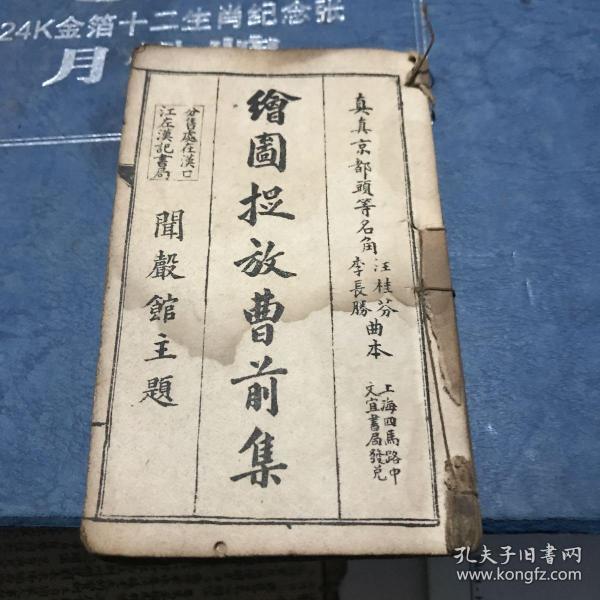 24K金箔十二生肖纪念张
月
真真京都頭等名角汪桂芬李長勝曲本
上海四馬路中
文宜書局發兌
繪圖捉放曹前集
分售處在漢口
江左漢記書局
聞聲館主題
孔夫子旧书网
www.kongfz.com